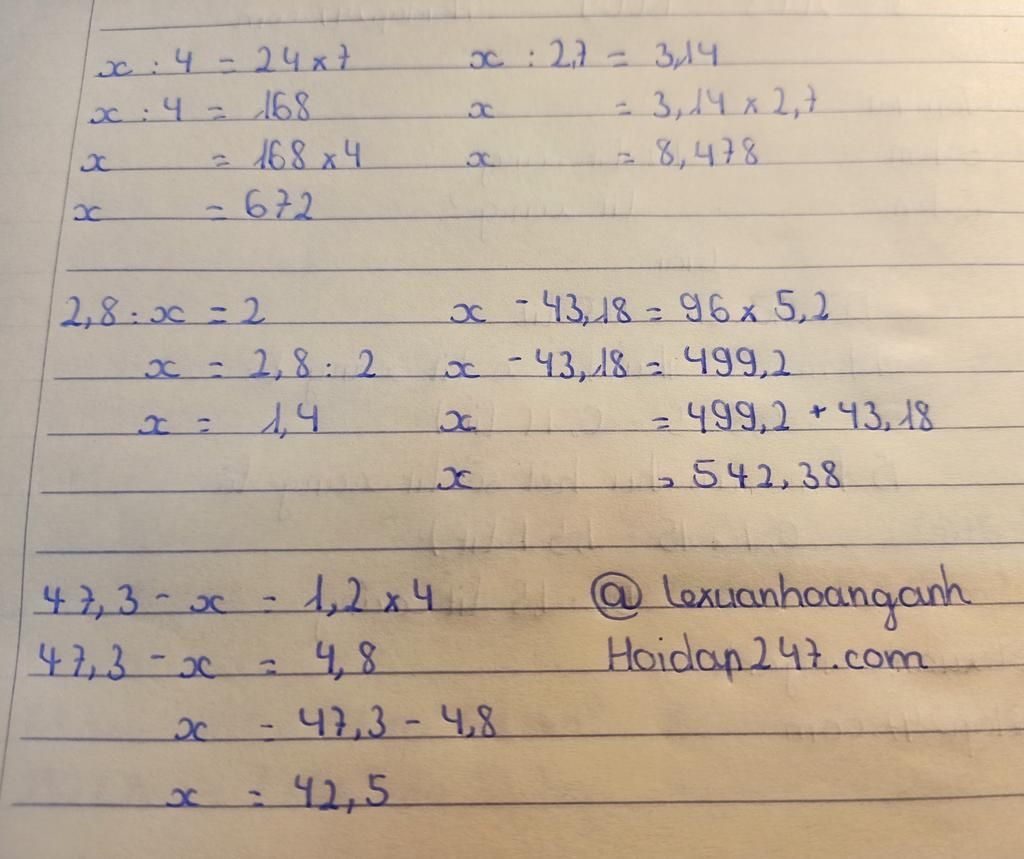 x : 4 = 24 x 7
x : 4 = 168
x = 168 x 4
x = 672
x : 2,7 = 3,14
x = 3,14 x 2,7
x = 8,478
2,8 : x = 2
x = 2,8 : 2
x = 1,4
x - 43,18 = 96 x 5,2
x - 43,18 = 499,2
x = 499,2 + 43,18
x = 542,38
47,3 - x = 1,2 x 4
47,3 - x = 4,8
x = 47,3 - 4,8
x = 42,5
@ lexuanhoanganh
Hoidap247.com